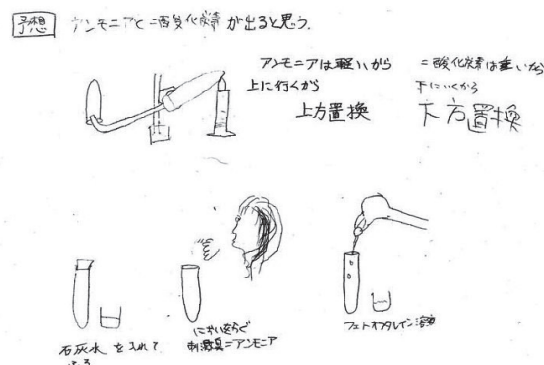 予想 アンモニアと二酸化炭素が出ると思う。
アンモニアは軽いから
上に行くから
上方置換
二酸化炭素は重いから
下にいくから
下方置換
石灰水を入れて
ふる
においをかぐ
刺激臭=アンモニア